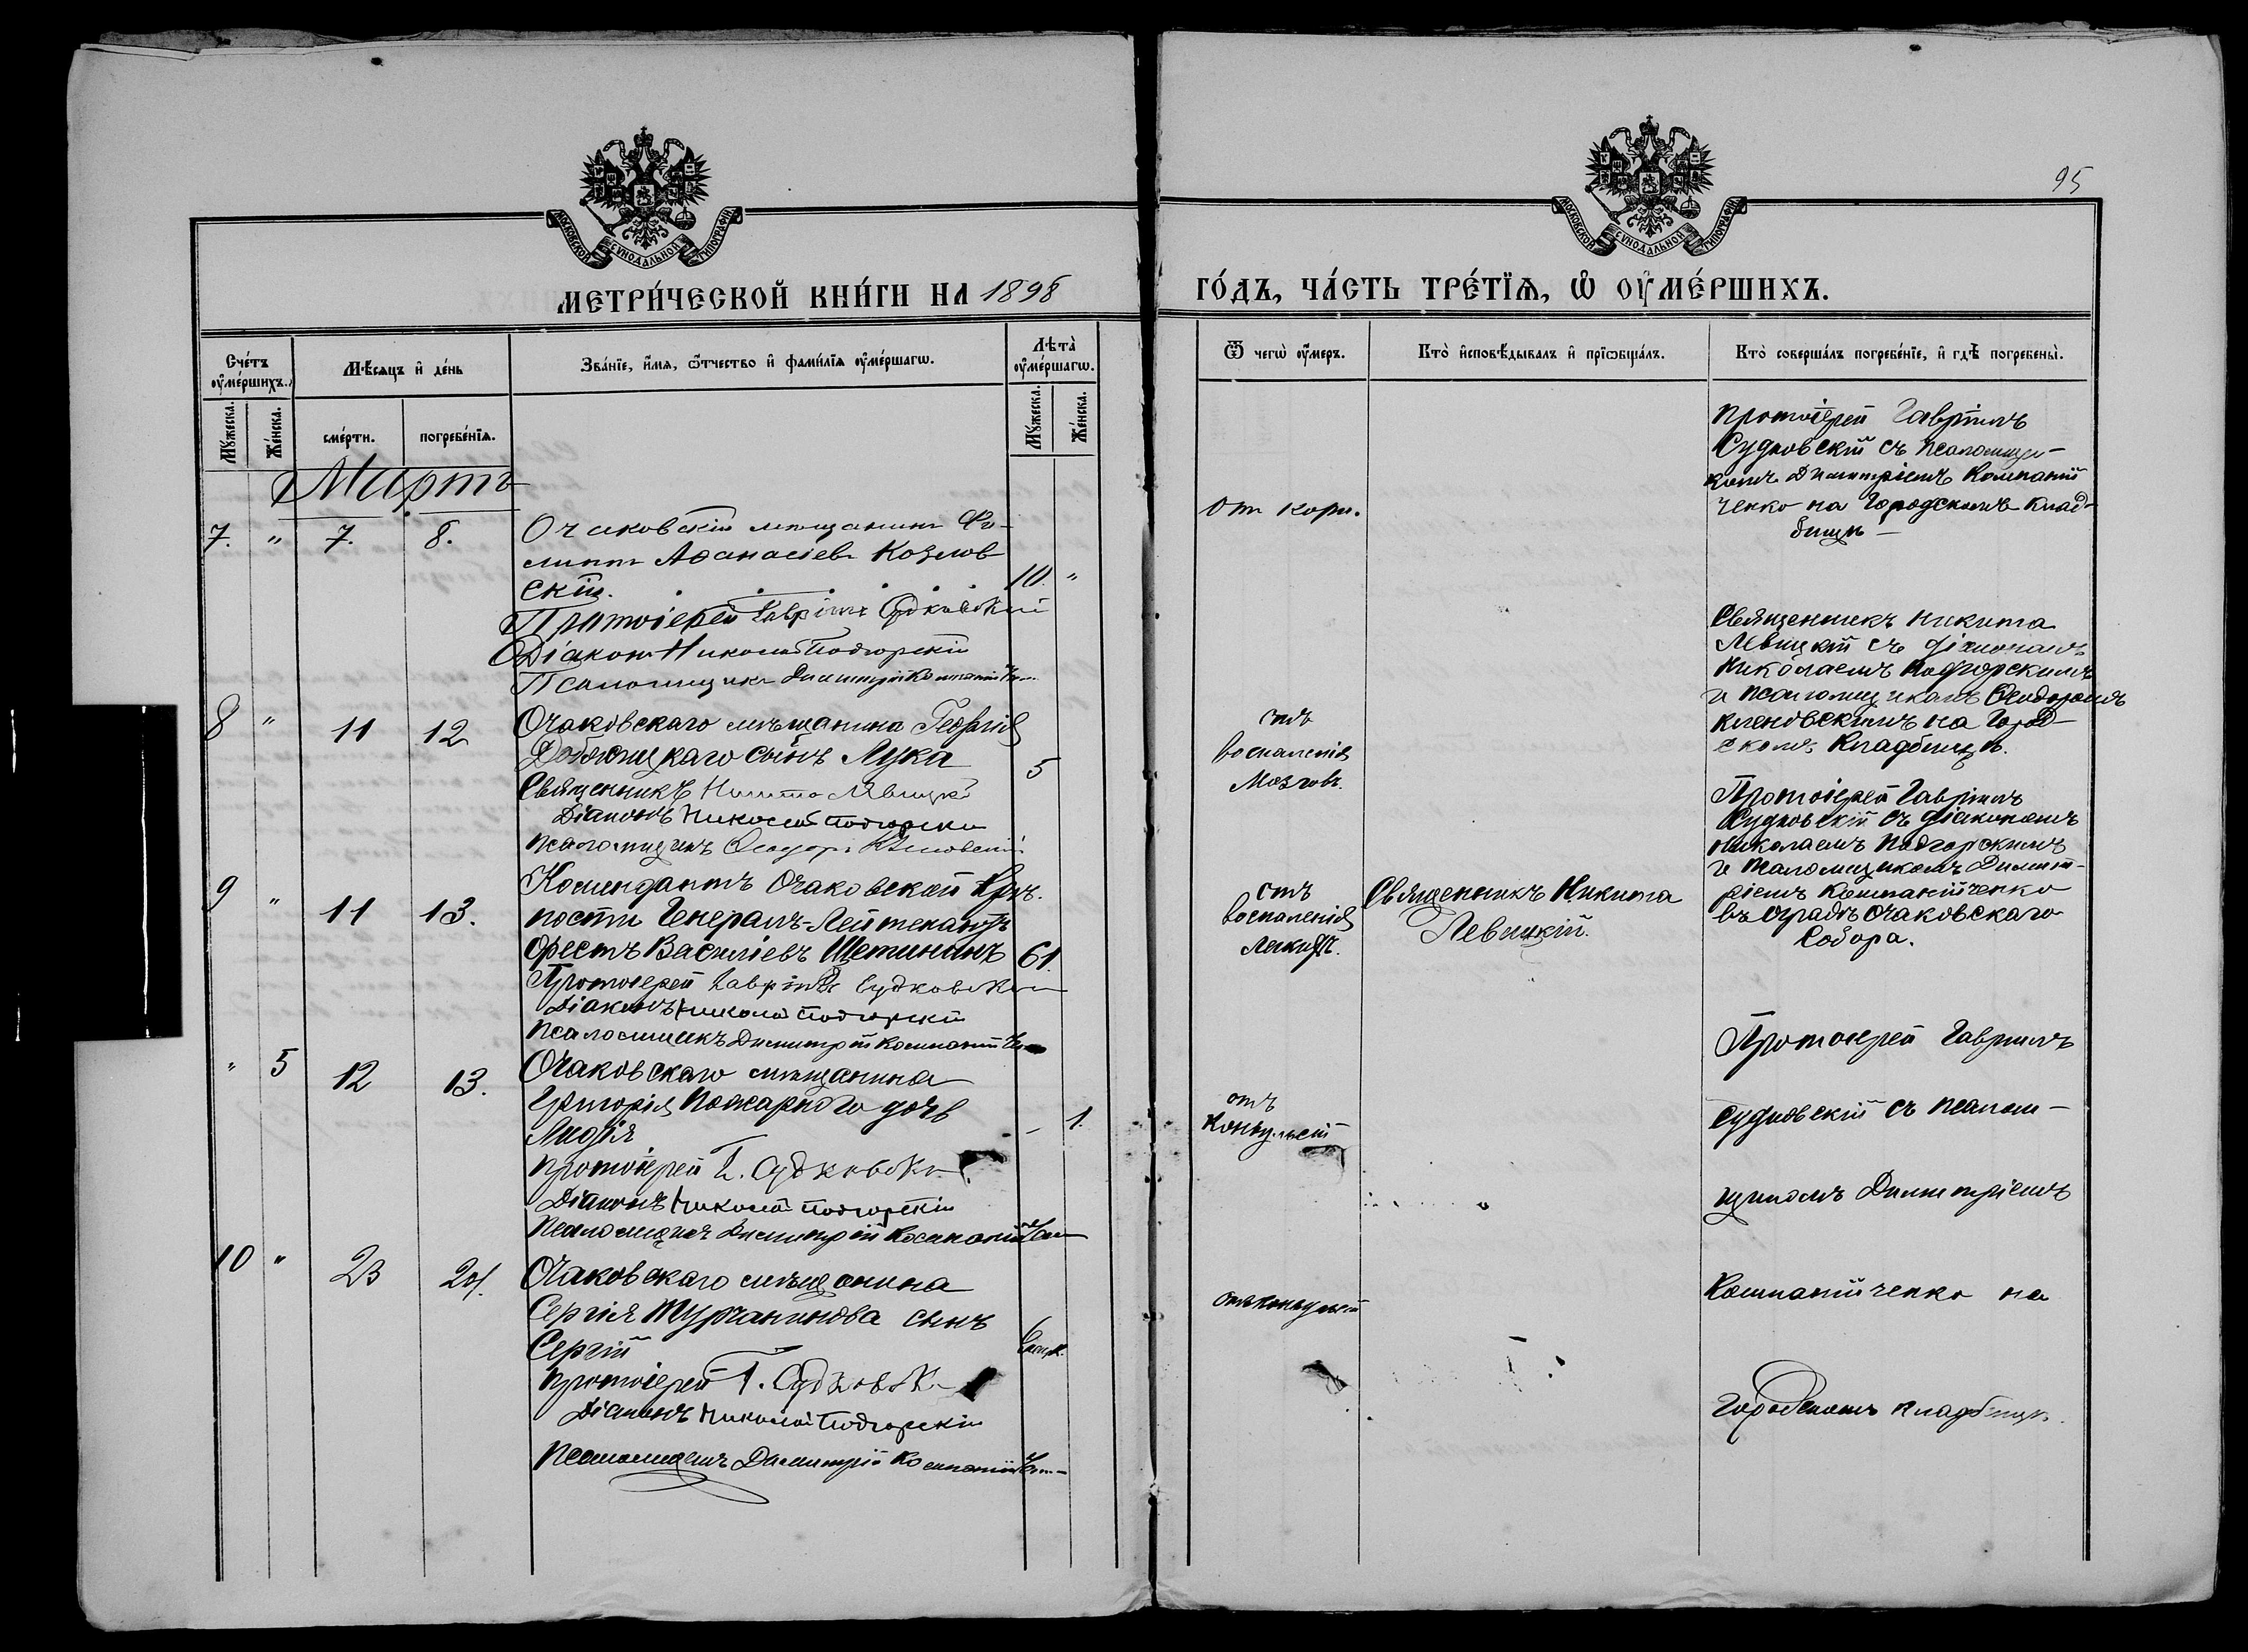 95
МОСКОВСКОЙ СѴНОДАЛЬНОЙ ТИПОГРАФІИ
МОСКОВСКОЙ СѴНОДАЛЬНОЙ ТИПОГРАФІИ
МЕТРИ́ЧЕСКОЙ КНИ́ГИ НА 1898
ГО́ДЪ, ЧА́СТЬ ТРЕ́ТІѦ, Ѡ ОУ҆МЕ́РШИХЪ.
Сче́тъ оу҆ме́ршихъ.
Мѣ́сяцъ и҆ де́нь
Зва́нїе, и҆́мѧ, ѻ҆́тчество и҆ фами́лїѧ оу҆ме́ршагѡ.
Лѣта̀ оу҆ме́ршагѡ.
Мꙋ́жеска.
Же́нска.
сме́рти.
погребе́нїѧ.
Мꙋ́жеска.
Же́нска.
Ѿ чегѡ̀ оу҆́меръ.
Кто̀ и҆сповѣ́дывалъ и҆ прїѡбща́лъ.
Кто̀ соверша́лъ погребе́нїе, и҆ гдѣ̀ погребены̀.
Мартъ
7. " 7. 8.
Очаковскій мѣщанинъ Фи-
липпъ Аѳанасіевъ Козлов
скій. 10. "
Протоіерей Гавріилъ Судковскій
Діаконъ Николай Подгорскій
Псаломщикъ Димитрій Компанійченко
от кори.
Протоіерей Гавріилъ
Судковскій съ псаломщи-
комъ Димитріемъ Компаній
ченко на Городскомъ клад-
бищѣ —
8 " 11 12
Очаковскаго мѣщанина Георгія
сынъ Лука 5
Священникъ Никита Левицкій
Діаконъ Николай Подгорскій
Псаломщикъ Ѳеодоръ Кленовскій
отъ
воспаленія
Мозговъ.
Священникъ Никита
Левицкій съ діакономъ
Николаемъ Подгорскимъ
и псаломщикомъ Ѳеодоромъ
Кленовскимъ на Город-
скомъ Кладбищѣ.
9 " 11 13.
Комендантъ Очаковской Крѣ-
пости Генералъ-Лейтенантъ
Орестъ Василіевъ Щетининъ 61.
Протоіерей Гавріилъ Судковскій
Діаконъ Николай Подгорскій
Псаломщикъ Димитрій Компанійченко
отъ
воспаленія
Легкихъ.
Священникъ Никита
Левицкій.
Протоіерей Гавріилъ
Судковскій съ діакономъ
Николаемъ Подгорскимъ
и псаломщикомъ Димит-
ріемъ Компанійченко
въ оградѣ Очаковскаго
Собора.
" 5 12 13.
Очаковскаго мѣщанина
Григорія Пожарного дочь
Лидія - 1.
Протоіерей Г. Судковскій
Діаконъ Николай Подгорскій
Псаломщикъ Димитрій Компанійченко
отъ
Конвульсій
Протоіерей Гавріилъ
Судковскій съ псалом-
щикомъ Димитріемъ
Компанійченко на
Городскомъ кладбищѣ.
10 " 23 24.
Очаковскаго мѣщанина
Сергія Турчанинова сынъ
Сергій
Протоіерей Г. Судковскій
Діаконъ Николай Подгорскій
Псаломщикъ Димитрій Компанійченко
отъ конвульсій